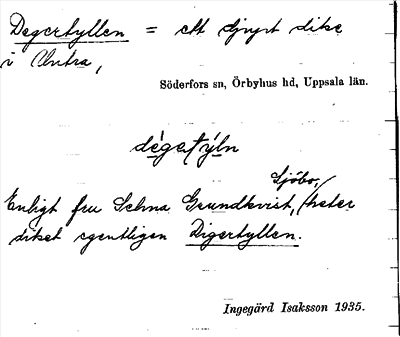 Degertyllen = ett djupt dike
i Untra,
Söderfors sn, Örbyhus hd, Uppsala län.
Enligt fru Selma Grundkvist, Sjöbo, heter
diket egentligen Digertyllen.
Ingegärd Isaksson 1935.